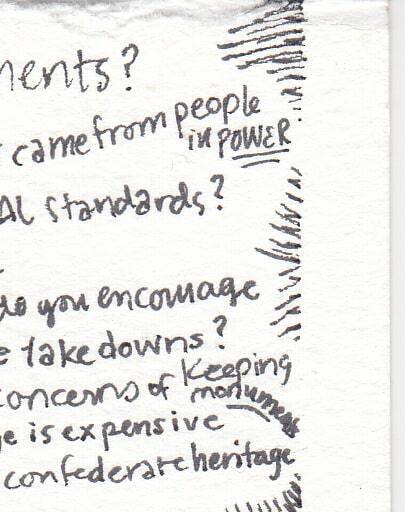 ments?
came from people
in POWER
AL standards?
do you encourage
e take downs?
concerns of keeping
monuments
ge is expensive
confederate heritage